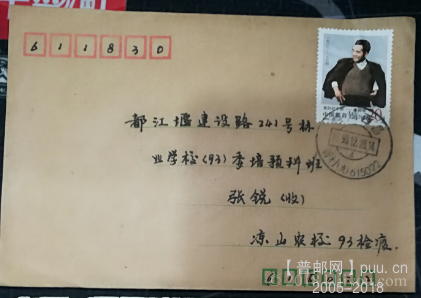 611830
都江堰建设路241号林
业学校(93)委培预科班
张锐(收)
凉山农校93检疫.
中国邮政
615022
【普邮网】puu.cn
2005-2018